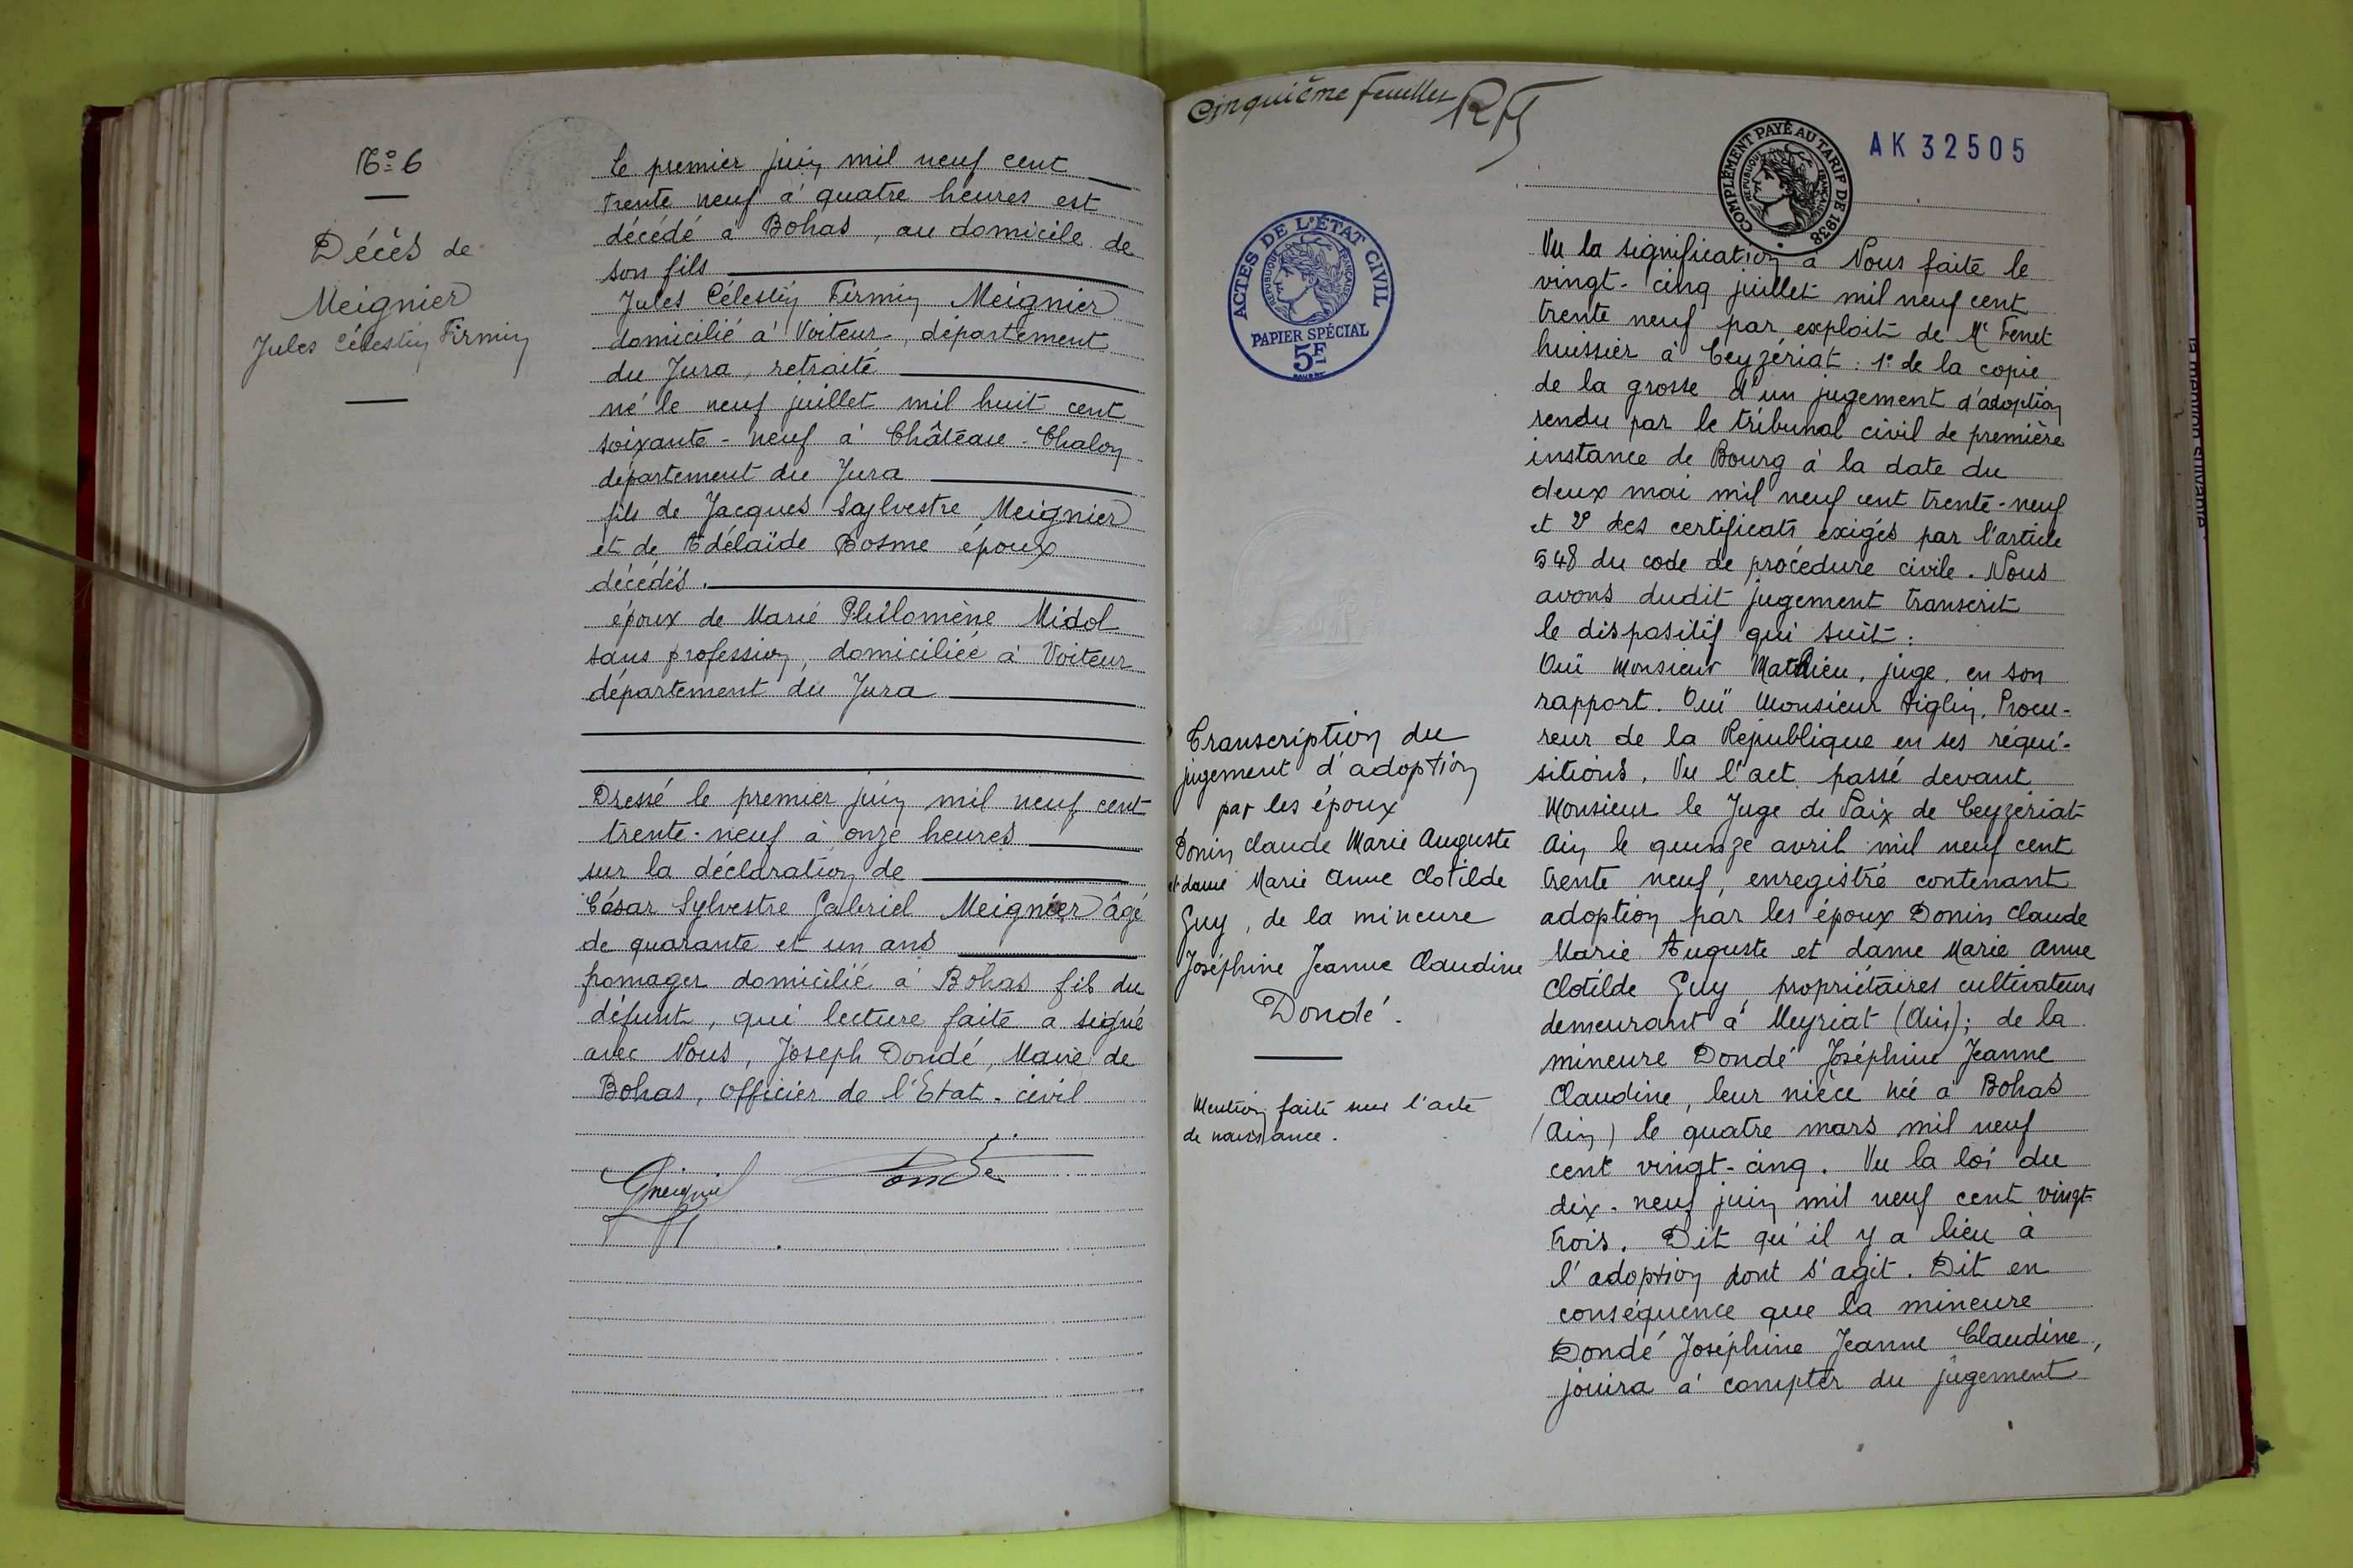 N° 6
Décès de
Meignier
Jules Célestin Firmin
Le premier juin mil neuf cent
trente neuf à quatre heures est
décédé à Bohas, au domicile de
son fils
Jules Célestin Firmin Meignier
domicilié à Voiteur, département
du Jura, retraité
né le neuf juillet mil huit cent
soixante-neuf à Château-Chalon
département du Jura
fils de Jacques Saylvestre Meignier
et de Adélaïde Bosme époux
décédés.
époux de Marie Philomène Midol
sans profession, domiciliée à Voiteur
département du Jura
Dressé le premier juin mil neuf cent
trente-neuf à onze heures
sur la déclaration de
César Sylvestre Gabriel Meignier âgé
de quarante et un ans
fromager domicilié à Bohas fils du
défunt, qui lecture faite a signé
avec Nous, Joseph Dondé, Maire de
Bohas, officier de l'Etat-civil
GMeignier Dondé
Cinquième feuillet
AK 32505
COMPLÉMENT PAYÉ AU TARIF DE 1938
RÉPUBLIQUE FRANÇAISE
ACTES DE L'ÉTAT CIVIL
RÉPUBLIQUE FRANÇAISE
PAPIER SPÉCIAL
5F
Transcription du
jugement d'adoption
par les époux
Donin Claude Marie Auguste
et dame Marie Anne Clotilde
Guy, de la mineure
Joséphine Jeanne Claudine
Dondé.
Mention faite sur l'acte
de naissance.
Vu la signification à Nous faite le
vingt-cinq juillet mil neuf cent
trente neuf par exploit de Me Fenet
huissier à Ceyzériat : 1° de la copie
de la grosse d'un jugement d'adoption
rendu par le tribunal civil de première
instance de Bourg à la date du
deux mai mil neuf cent trente-neuf
et 2° des certificats exigés par l'article
548 du code de procédure civile. Nous
avons dudit jugement transcrit
le dispositif qui suit :
Ouï Monsieur Mathieu, juge, en son
rapport. Ouï Monsieur Aiglin, Procu-
reur de la République en ses réqui-
sitions. Vu l'act passé devant
Monsieur le Juge de Paix de Ceyzériat
Ain le quinze avril mil neuf cent
trente neuf, enregistré contenant
adoption par les époux Donin Claude
Marie Auguste et dame Marie Anne
Clotilde Guy propriétaires cultivateurs
demeurant à Meyriat (Ain); de la
mineure Dondé Joséphine Jeanne
Claudine, leur nièce née à Bohas
(Ain) le quatre mars mil neuf
cent vingt-cinq. Vu la loi du
dix-neuf juin mil neuf cent vingt-
trois. Dit qu'il y a lieu à
l'adoption dont s'agit. Dit en
conséquence que la mineure
Dondé Joséphine Jeanne Claudine,
jouira à compter du jugement